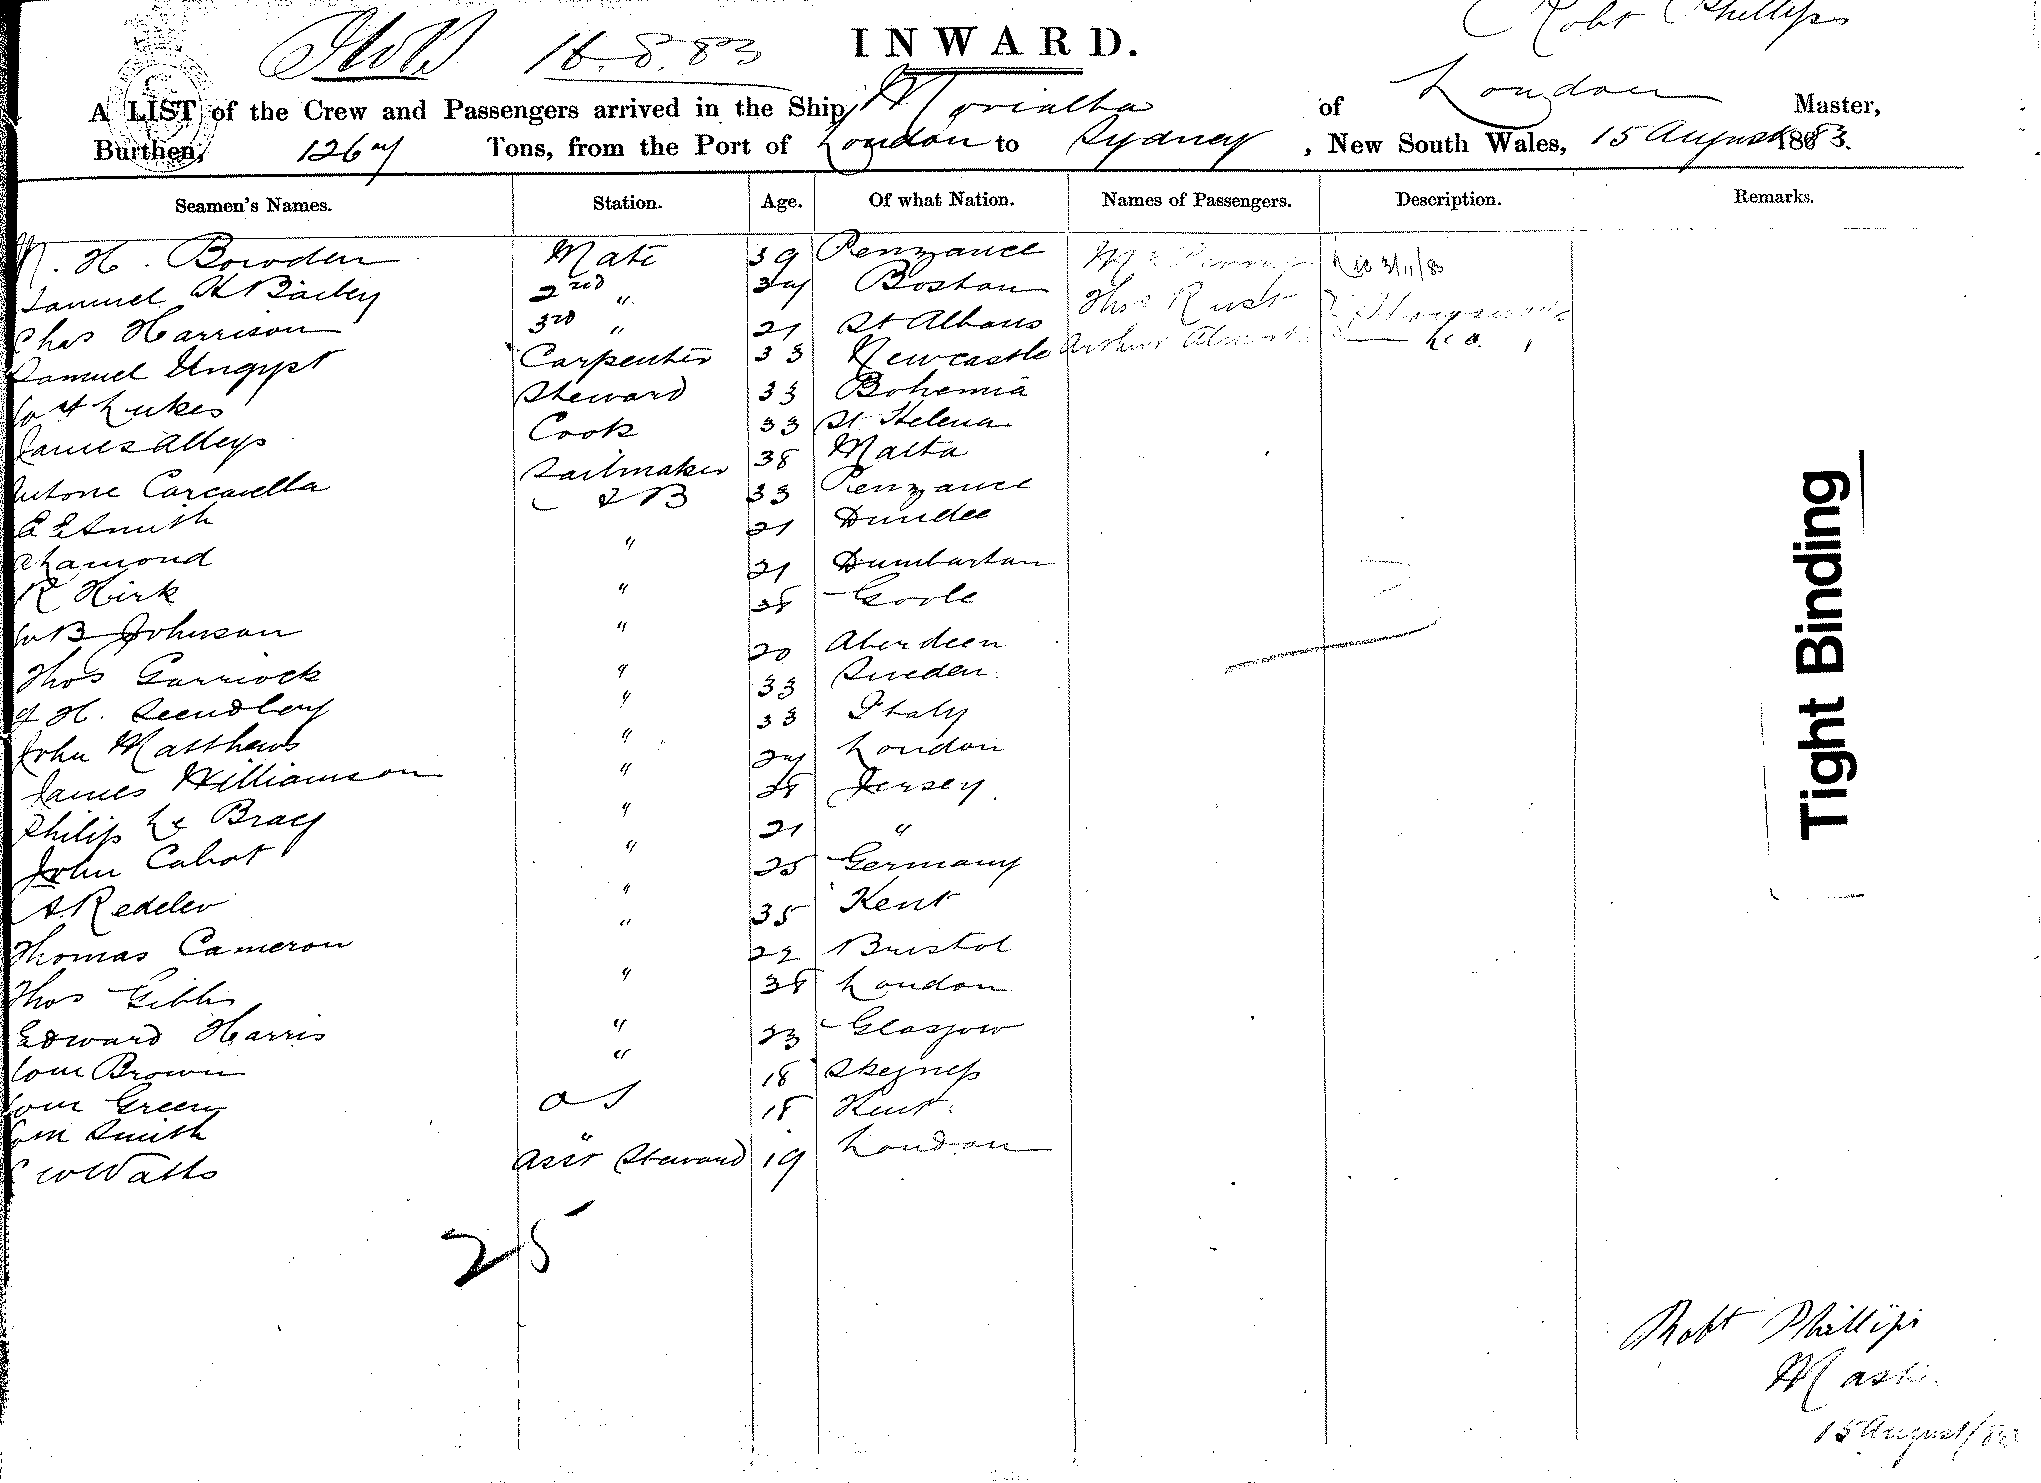 16.8.83 INWARD. Robt Phillips
A LIST of the Crew and Passengers arrived in the Ship Morialta of London Master,
Burthen, 1267 Tons, from the Port of London to Sydney, New South Wales, 15 August 1883.
Seamen's Names. Station. Age. Of what Nation. Names of Passengers. Description. Remarks.
H. Bowden Mate 39 Penzance Mr
Samuel H Bailey 2nd " Boston Thos Rust
Chas Harrison 3rd " 21 St Albans Arthur
Samuel Carpenter 33 Newcastle
Lukes Steward 33 Bohemia
James Alleys Cook 33 St Helena
Antone Carcarella Sailmaker 38 Malta
C E Smith AB 33 Penzance
Hamond " 21 Dundee
R Kirk " 21 Dumbarton
B Johnson " 28 Goole
Thos Garriock " 20 Aberdeen
H. Seendbery " 33 Sweden
John Matthews " 33 Italy
James Williamson " London
Philip Le Bracy " 28 Jersey
John Cabot " 21 "
A. Redeler " 25 Germany
Thomas Cameron " 35 Kent
Thos Gibbs " 22 Bristol
Edward Harris " 38 London
Tom Brown " 23 Glasgow
Tom Green O S 18 Skegness
Smith " 18 Kent
W Watts Asst Steward 19 London
25
Tight Binding
Robt Phillips
Master
15 August/83